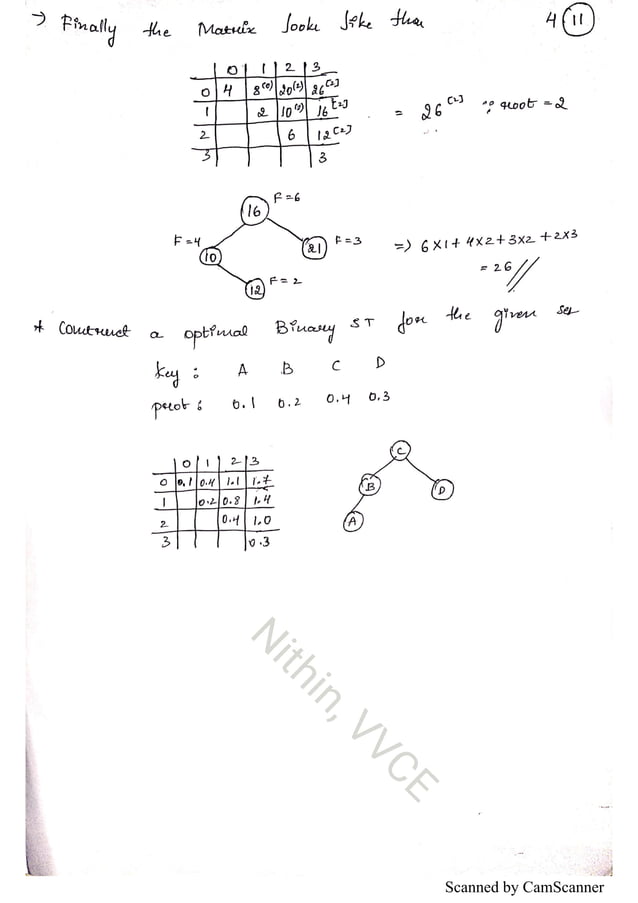 → Finally the Matrix looks like this 4 (11)
0 1 2 3
0 4 8(0) 20(2) 26[2]
1 2 10(2) 16[2]
2 6 12[2]
3 3
= 26[2] ∵ root = 2
16 F=6
F=4 10 21 F=3
12 F=2
=> 6x1 + 4x2 + 3x2 + 2x3
= 26 //
* Construct a optimal Binary ST for the given set
key : A B C D
prob : 0.1 0.2 0.4 0.3
0 1 2 3
0 0.1 0.4 1.1 1.7
1 0.2 0.8 1.4
2 0.4 1.0
3 0.3
C
B D
A
Nithin, VVCE
Scanned by CamScanner